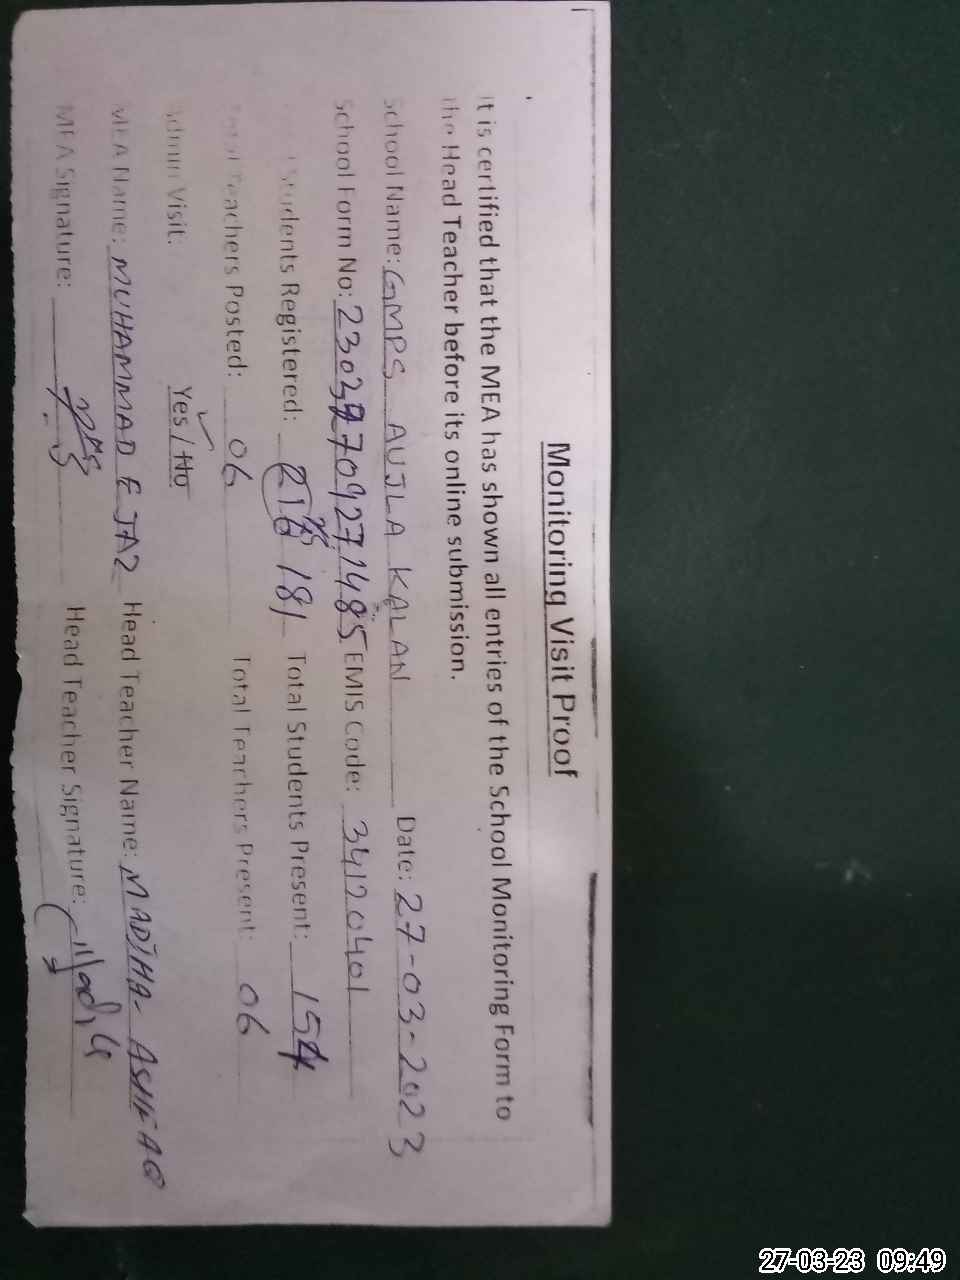 Monitoring Visit Proof
It is certified that the MEA has shown all entries of the School Monitoring Form to
the Head Teacher before its online submission.
School Name: GMPS AUJLA KALAN Date: 27-03-2023
School Form No: EMIS Code: 34120401
Students Registered: 216 181 Total Students Present: 154
Total Teachers Posted: 06 Total Teachers Present: 06
Admin Visit: Yes / No
MEA Name: MUHAMMAD EJAZ Head Teacher Name: MADIHA ASHFAQ
MEA Signature: Head Teacher Signature: Madiha
27-03-23 09:49